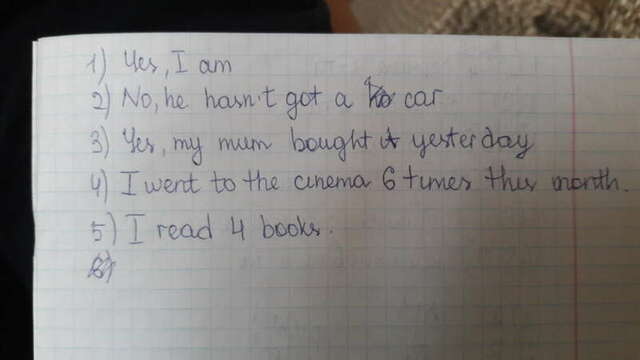 1) Yes, I am
2) No, he hasn't got a car
3) Yes, my mum bought it yesterday
4) I went to the cinema 6 times this month.
5) I read 4 books.
6)